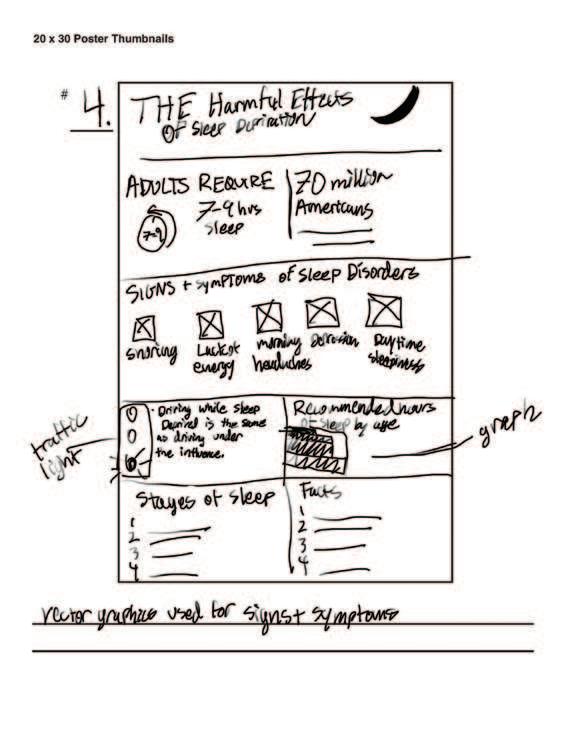 20 x 30 Poster Thumbnails
# 4.
THE Harmful Effects
Of Sleep Deprivation
ADULTS REQUIRE
7-9 hrs
sleep
7-9
70 million
Americans
SIGNS + symptoms of Sleep Disorders
snoring
Lack of
energy
morning
headaches
Depression
Daytime
sleepiness
traffic
light
• Driving while sleep
Deprived is the same
as driving under
the influence.
Recommended hours
of sleep by age
graph
Stages of sleep
1
2
3
4
Facts
1
2
3
4
vector graphics used for signs + symptoms